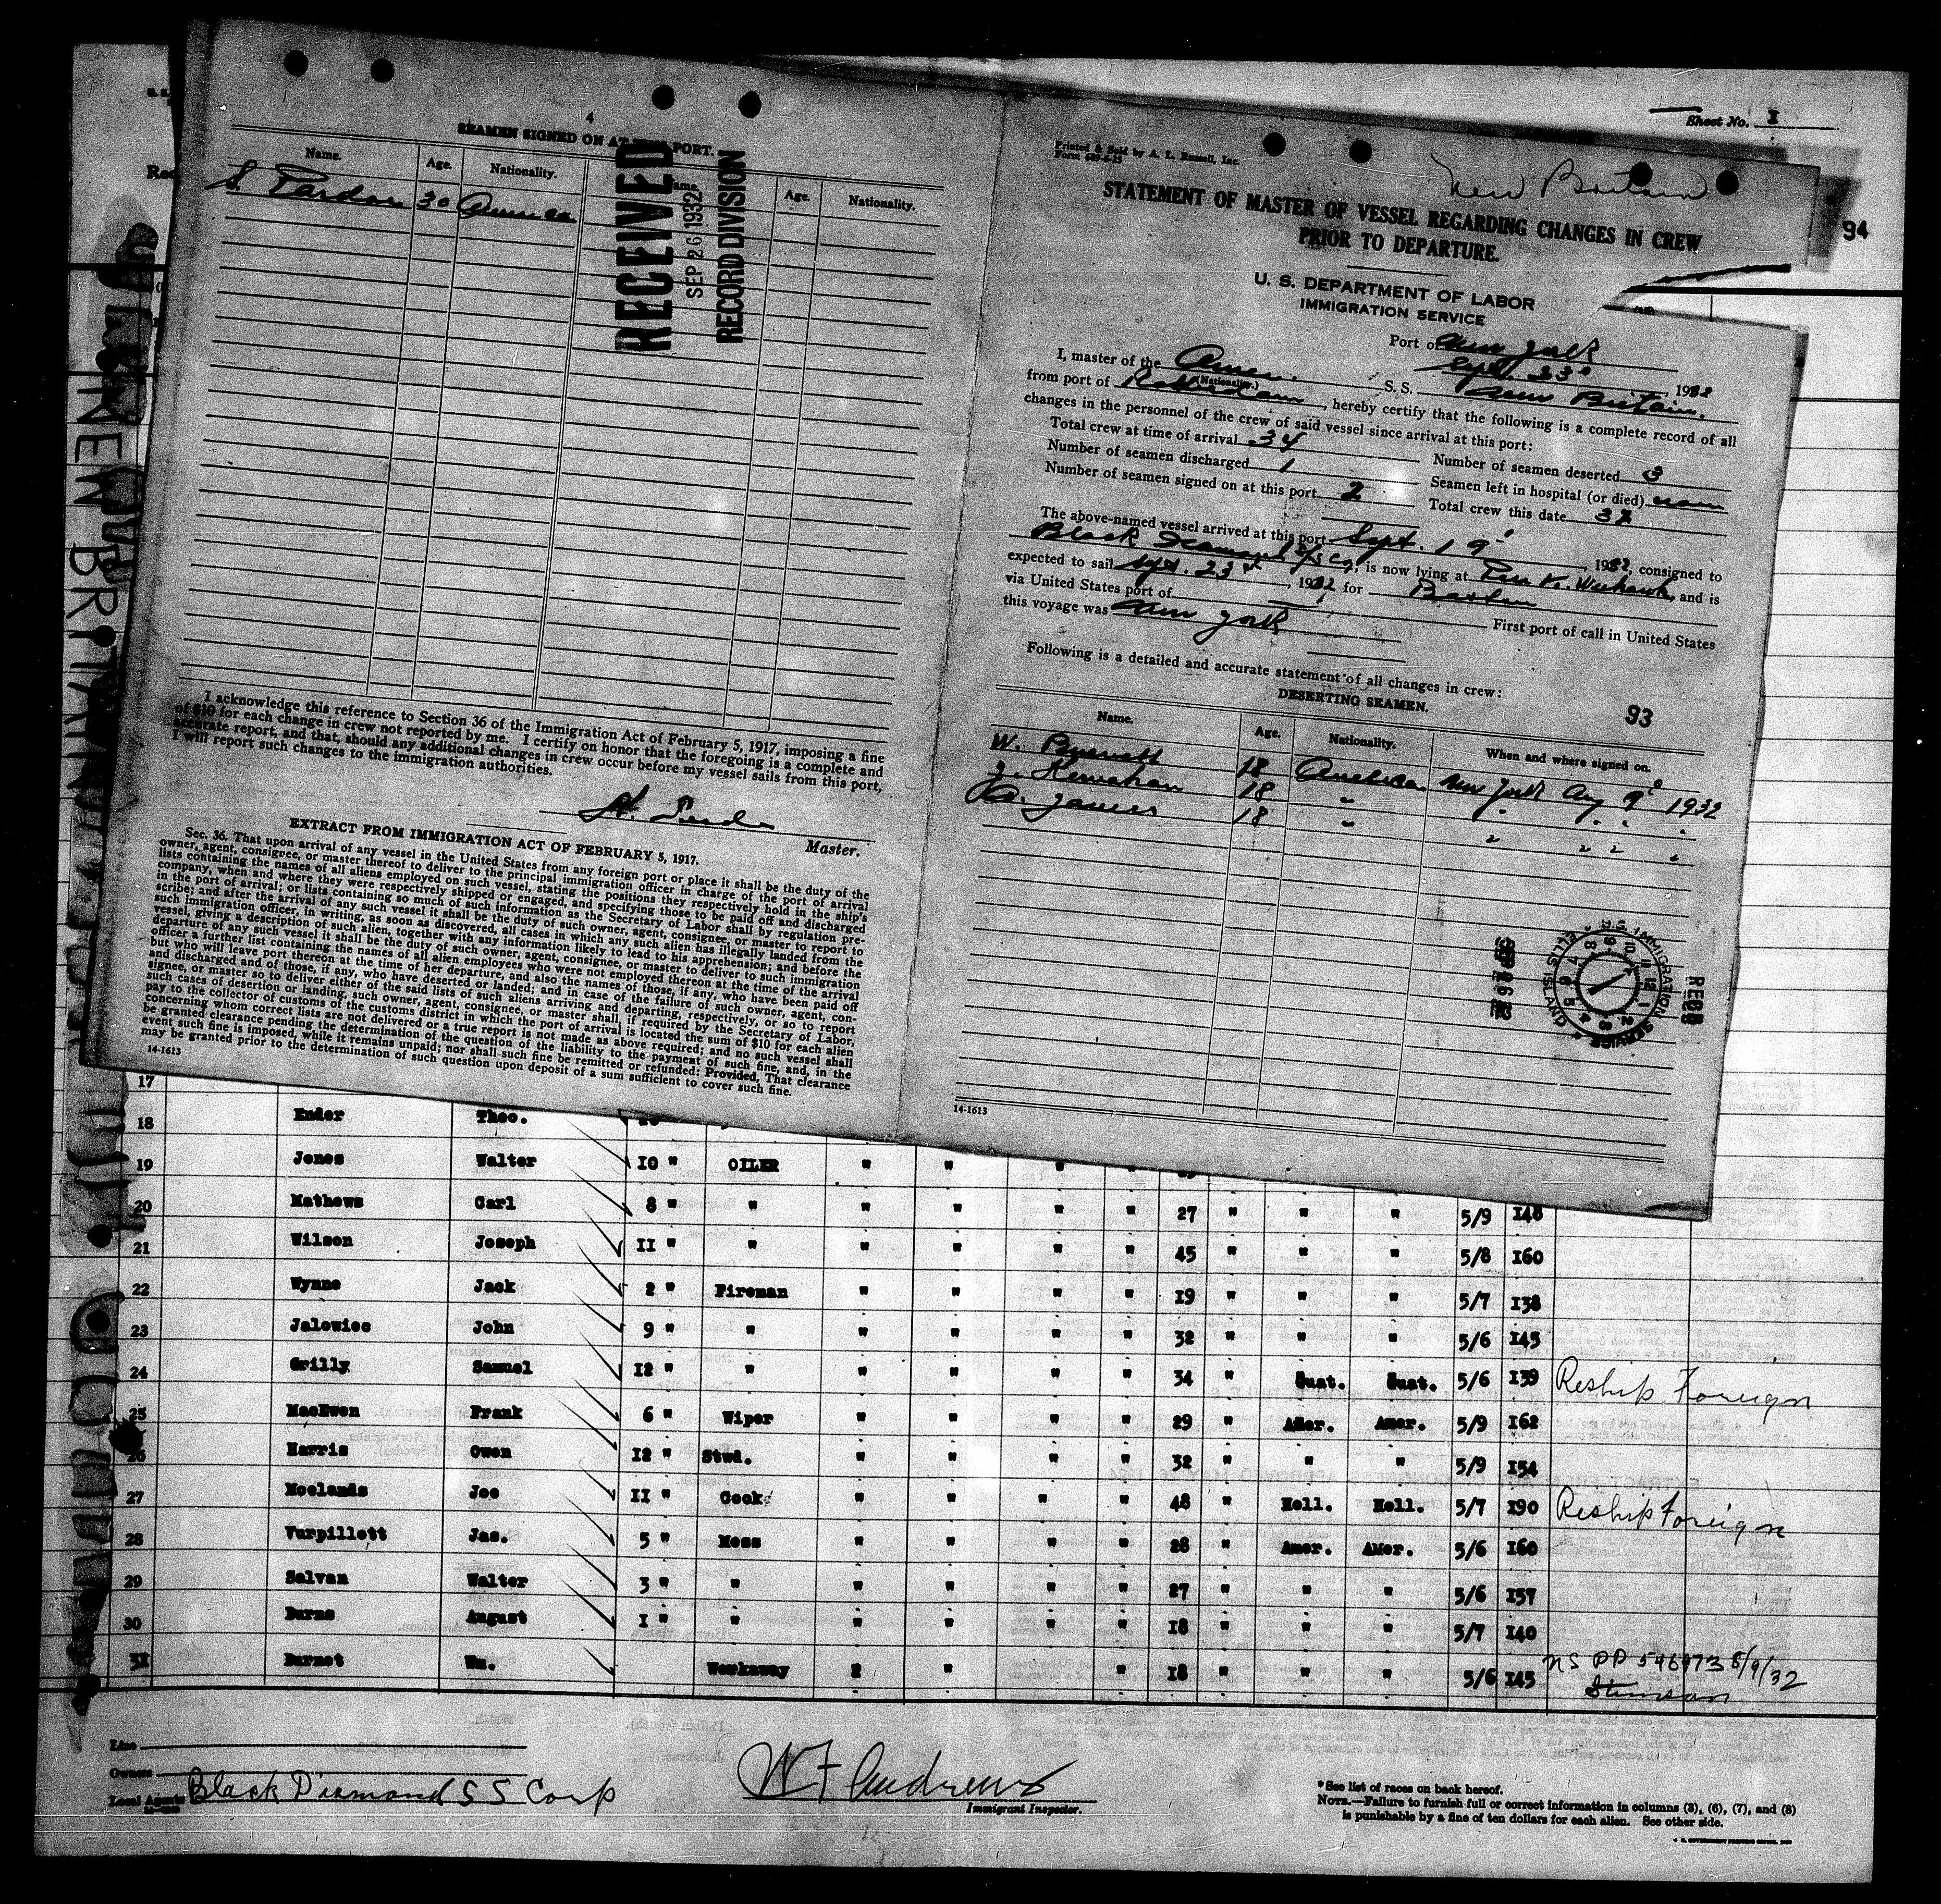 Sheet No. I
94
4
SEAMEN SIGNED ON AT THIS PORT.
Name. Age. Nationality. Name. Age. Nationality.
S. Pardon 30 America
RECEIVED
SEP 26 1932
RECORD DIVISION
I acknowledge this reference to Section 36 of the Immigration Act of February 5, 1917, imposing a fine
of $10 for each change in crew not reported by me. I certify on honor that the foregoing is a complete and
accurate report, and that, should any additional changes in crew occur before my vessel sails from this port,
I will report such changes to the immigration authorities.
Master.
EXTRACT FROM IMMIGRATION ACT OF FEBRUARY 5, 1917.
Sec. 36. That upon arrival of any vessel in the United States from any foreign port or place it shall be the duty of the
owner, agent, consignee, or master thereof to deliver to the principal immigration officer in charge of the port of arrival
lists containing the names of all aliens employed on such vessel, stating the positions they respectively hold in the ship's
company, when and where they were respectively shipped or engaged, and specifying those to be paid off and discharged
in the port of arrival; or lists containing so much of such information as the Secretary of Labor shall by regulation pre-
scribe; and after the arrival of any such vessel it shall be the duty of such owner, agent, consignee, or master to report to
such immigration officer, in writing, as soon as discovered, all cases in which any such alien has illegally landed from the
vessel, giving a description of such alien, together with any information likely to lead to his apprehension; and before the
departure of any such vessel it shall be the duty of such owner, agent, consignee, or master to deliver to such immigration
officer a further list containing the names of all alien employees who were not employed thereon at the time of the arrival
but who will leave port thereon at the time of her departure, and also the names of those, if any, who have been paid off
and discharged and of those, if any, who have deserted or landed; and in case of the failure of such owner, agent, con-
signee, or master so to deliver either of the said lists of such aliens arriving and departing, respectively, or so to report
such cases of desertion or landing, such owner, agent, consignee, or master shall, if required by the Secretary of Labor,
pay to the collector of customs of the customs district in which the port of arrival is located the sum of $10 for each alien
concerning whom correct lists are not delivered or a true report is not made as above required; and no such vessel shall
be granted clearance pending the determination of the question of the liability to the payment of such fine, and, in the
event such fine is imposed, while it remains unpaid; nor shall such fine be remitted or refunded: Provided, That clearance
may be granted prior to the determination of such question upon deposit of a sum sufficient to cover such fine.
14-1613
Printed & Sold by A. L. Russell, Inc.
Form 689-6-25
New Britain
STATEMENT OF MASTER OF VESSEL REGARDING CHANGES IN CREW
PRIOR TO DEPARTURE.
U. S. DEPARTMENT OF LABOR
IMMIGRATION SERVICE
Port of New York
Sept 23d, 1932
I, master of the Amer. S. S. New Britain.
(Nationality.)
from port of Rotterdam, hereby certify that the following is a complete record of all
changes in the personnel of the crew of said vessel since arrival at this port:
Total crew at time of arrival 34
Number of seamen deserted 3
Number of seamen discharged 1
Seamen left in hospital (or died) none
Number of seamen signed on at this port 2
Total crew this date 32
The above-named vessel arrived at this port Sept. 19, 1932, consigned to
Black Diamond S/S Co, is now lying at Pier K. Weehawk, and is
expected to sail Sept. 23d, 1932 for Boston
via United States port of
First port of call in United States
this voyage was New York
Following is a detailed and accurate statement of all changes in crew:
DESERTING SEAMEN.
93
Name. Age. Nationality. When and where signed on.
W. Burnett 18 America New York Aug 9 1932
J. Kernahan 18 " " " " "
A. James 18 " " " " "
U. S. IMMIGRATION SERVICE ELLIS ISLAND
14-1613
NEW BRITAIN
17
18 Ender Theo.
19 Jones Walter 10 " OILER " " " "
20 Mathews Carl 8 " " " " " " 27 " " " 5/9 148
21 Wilson Joseph II " " " " " " 45 " " " 5/8 160
22 Wynne Jack 2 " Fireman " " " " 19 " " " 5/7 138
23 Jalowiec John 9 " " " " " " 32 " " " 5/6 145
24 Grilly Samuel 12 " " " " " " 34 " Guat. Guat. 5/6 139 Reship Foreign
25 MacEwen Frank 6 " Wiper " " " " 29 " Amer. Amer. 5/9 162
26 Harris Owen 12 " Stwd. " " " " 32 " " " 5/9 154
27 Moelands Joe II " Cook " " " " 48 " Holl. Holl. 5/7 190 Reship Foreign
28 Vurpillett Jas. 5 " Mess " " " " 28 " Amer. Amer. 5/6 160
29 Salvan Walter 3 " " " " " " 27 " " " 5/6 157
30 Burns August I " " " " " " 18 " " " 5/7 140
31 Burnet Wm. Workaway " " " 18 " " " 5/6 145 NS PP 546973 8/9/32
Stimson
Line
Owners
Local Agents Black Diamond S S Corp
W F Andrews
Immigrant Inspector.
*See list of races on back hereof.
NOTE.—Failure to furnish full or correct information in columns (3), (6), (7), and (8)
is punishable by a fine of ten dollars for each alien. See other side.